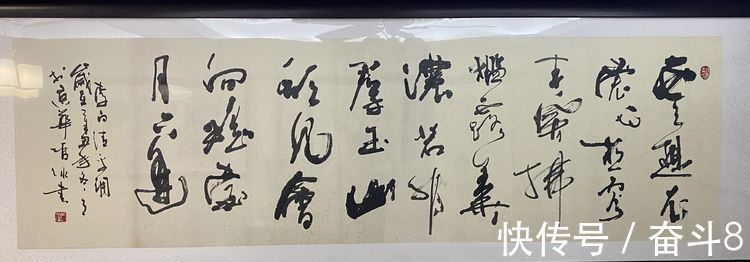 雲想衣
裳花想容
春風拂
檻露華
濃若非
羣玉山
頭見會
向瑤臺
月下逢
李白清平調
歲在辛丑
京華 書
快传号 / 奋斗8